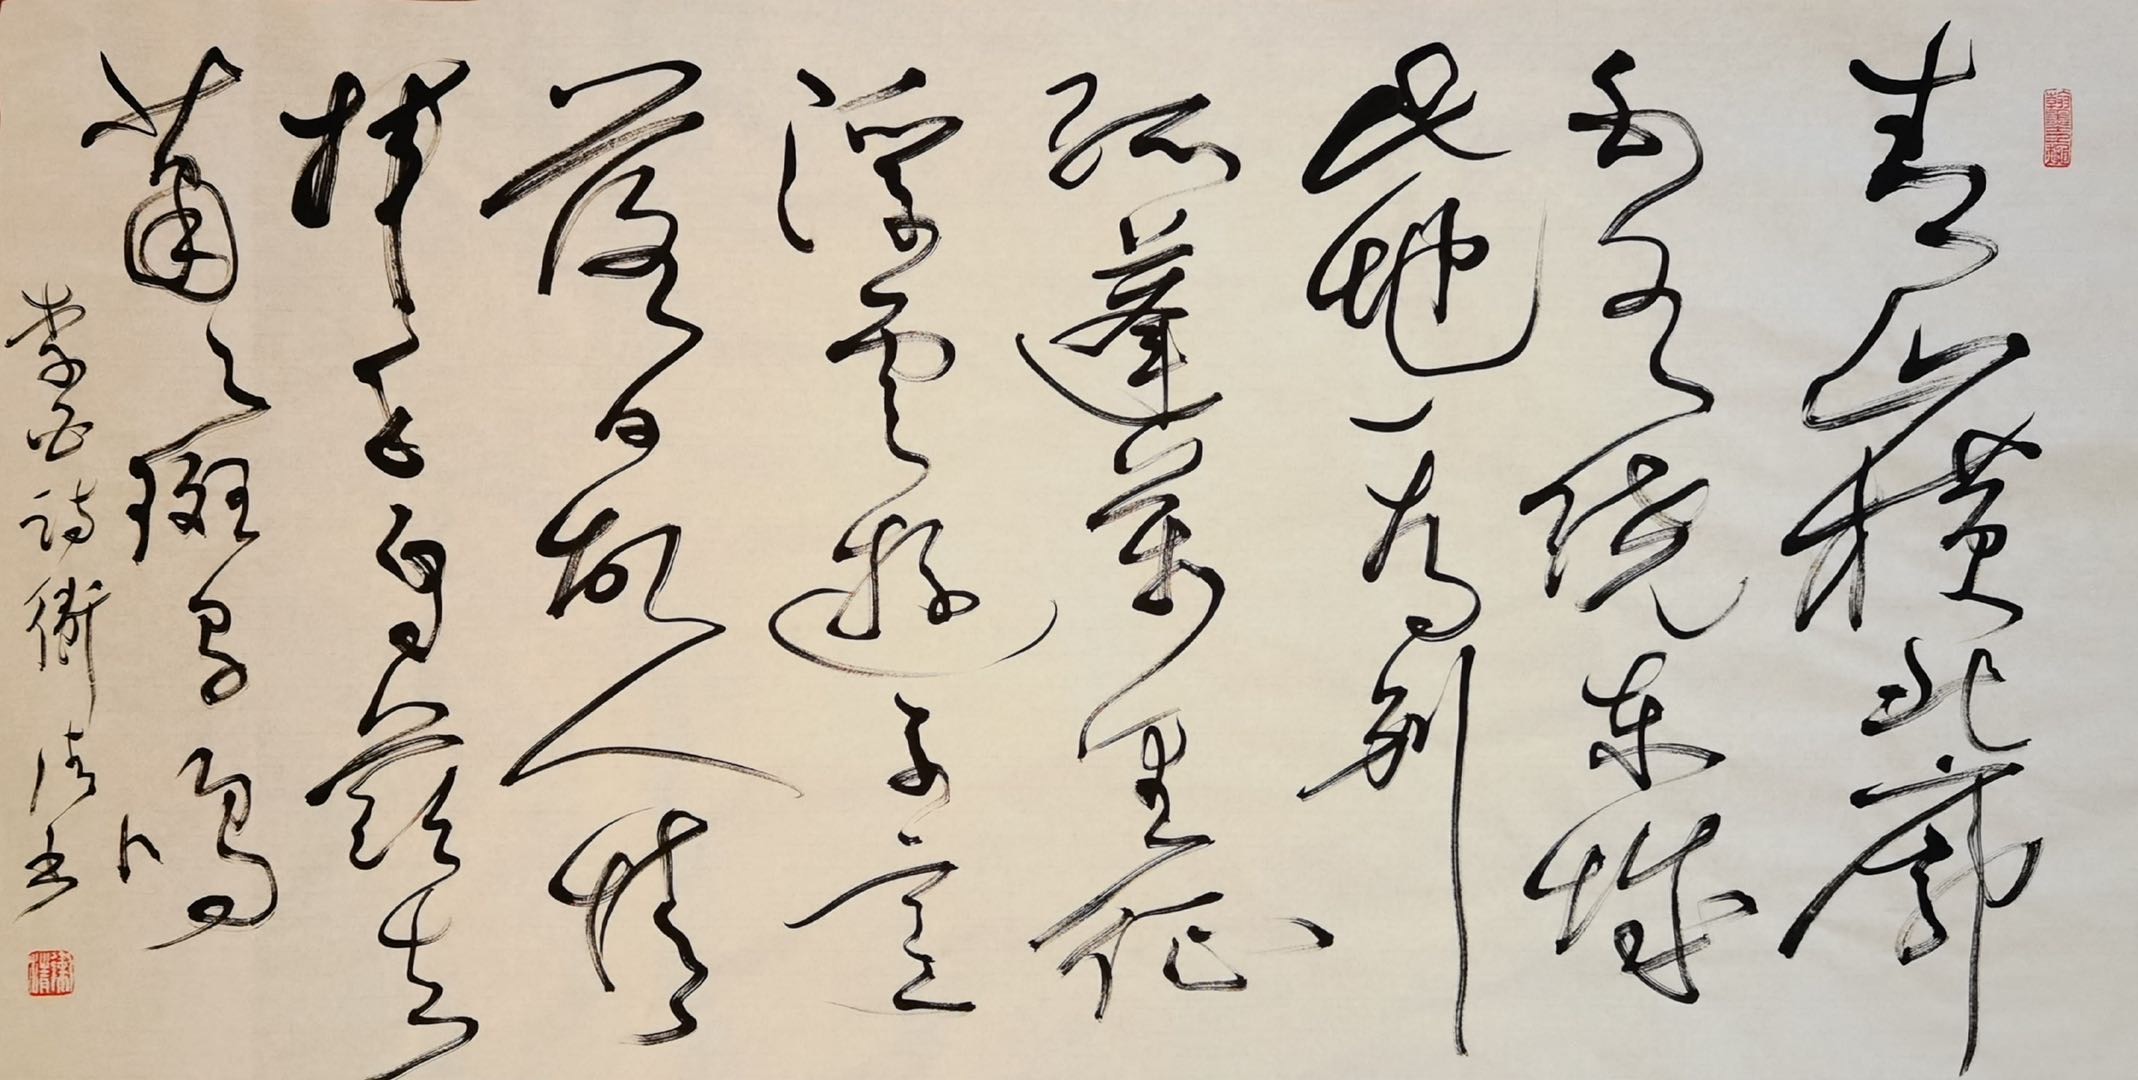 青山橫北郭
白水繞東城
此地一為別
孤蓬萬里征
浮雲遊子意
落日故人情
揮手自茲去
蕭々班馬鳴
李白詩衛清书